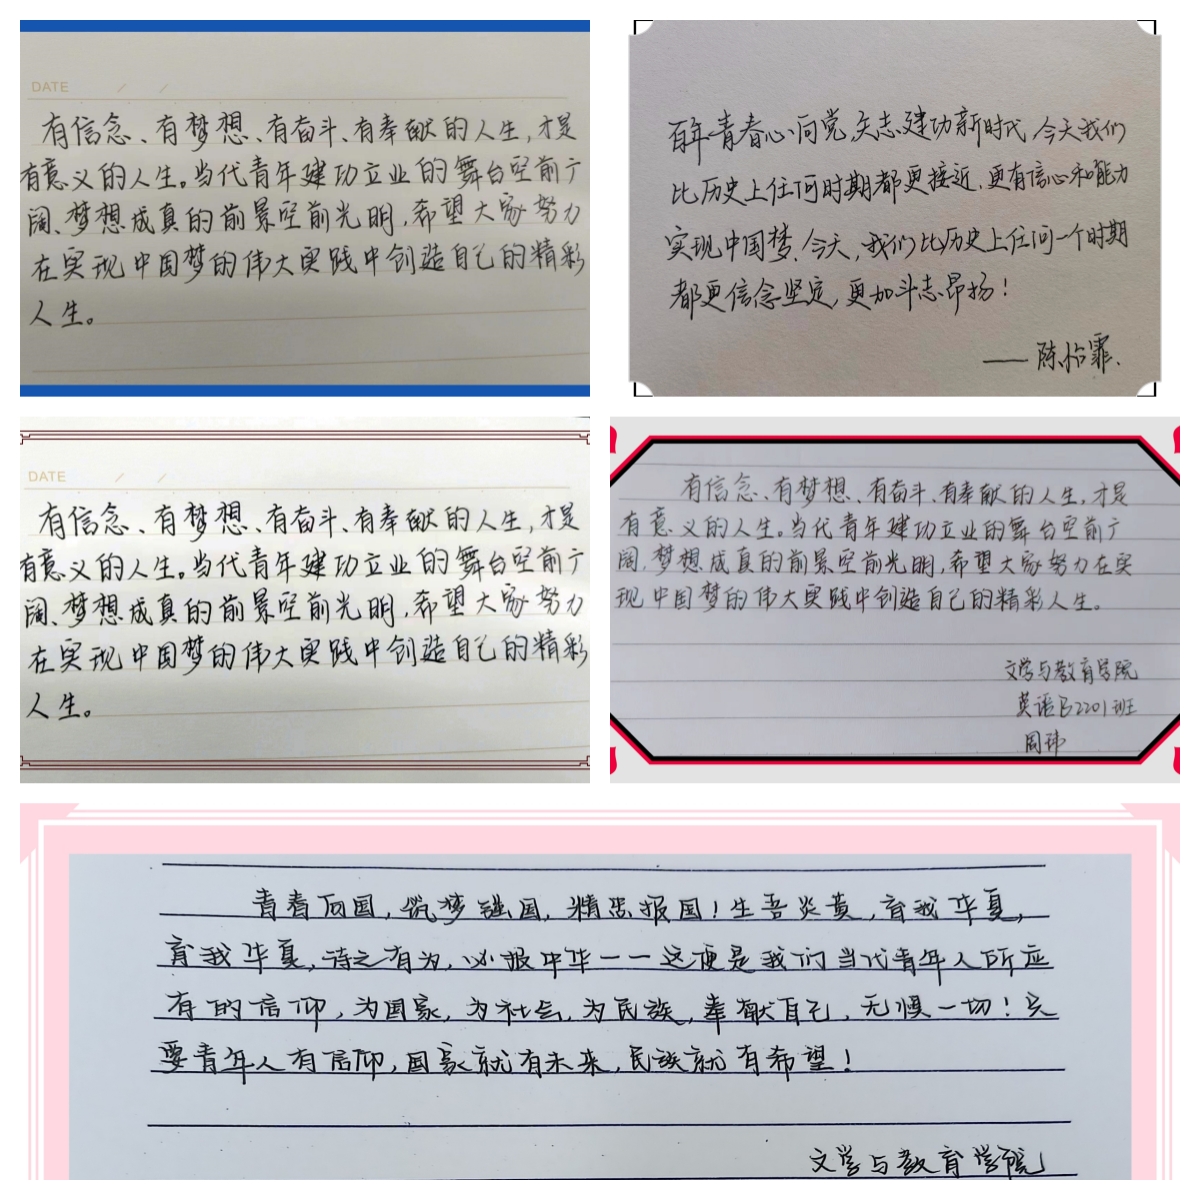 DATE / /
有信念、有梦想、有奋斗、有奉献的人生,才是
有意义的人生。当代青年建功立业的舞台空前广
阔、梦想成真的前景空前光明,希望大家努力
在实现中国梦的伟大实践中创造自己的精彩
人生。
百年青春心向党,矢志建功新时代,今天我们
比历史上任何时期都更接近,更有信心和能力
实现中国梦.今天,我们比历史上任何一个时期
都更信念坚定,更加斗志昂扬!
——陈怡霏.
DATE / /
有信念、有梦想、有奋斗、有奉献的人生,才是
有意义的人生。当代青年建功立业的舞台空前广
阔、梦想成真的前景空前光明,希望大家努力
在实现中国梦的伟大实践中创造自己的精彩
人生。
有信念、有梦想、有奋斗、有奉献的人生,才是
有意义的人生。当代青年建功立业的舞台空前广
阔,梦想成真的前景空前光明,希望大家努力在实
现中国梦的伟大实践中创造自己的精彩人生。
文学与教育学院
英语B2201班
周玮
青春向国,筑梦强国,精忠报国!生吾炎黄,育我华夏,
育我华夏,待之有为,必报中华——这便是我们当代青年人所应
有的信仰,为国家,为社会,为民族,奉献自己,无惧一切!只
要青年人有信仰,国家就有未来,民族就有希望!
文学与教育学院